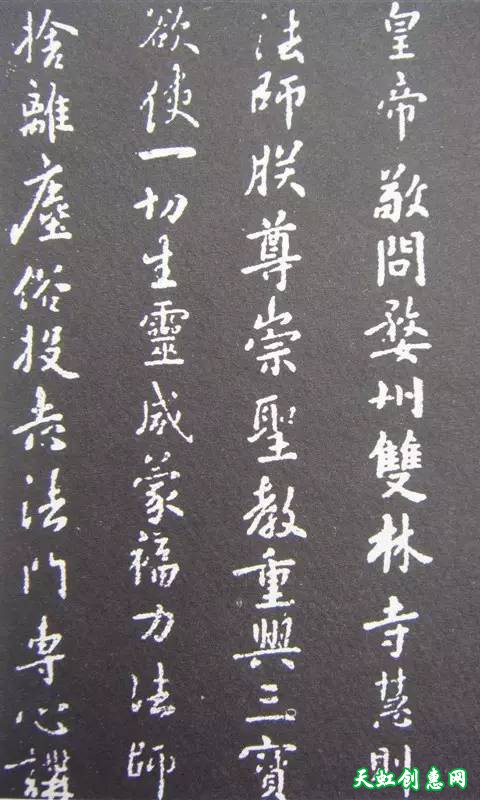 皇帝敬問婺州雙林寺慧則
法師朕尊崇聖教重興三寶
欲使一切生靈咸蒙福力法師
捨離塵俗投志法門專心講
天虹创惠网